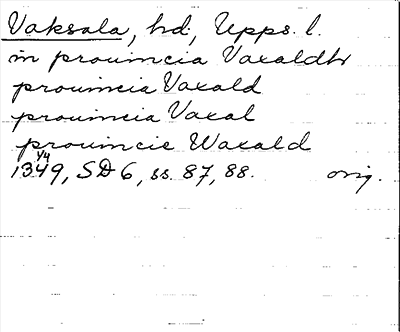 Vaksala, hd, Upps. l.
in prouincia Vaxaldh
prouincia Vaxald
prouincia Vaxal
prouincie Waxald
1/4
1349, SD 6, ss. 87, 88. orig.